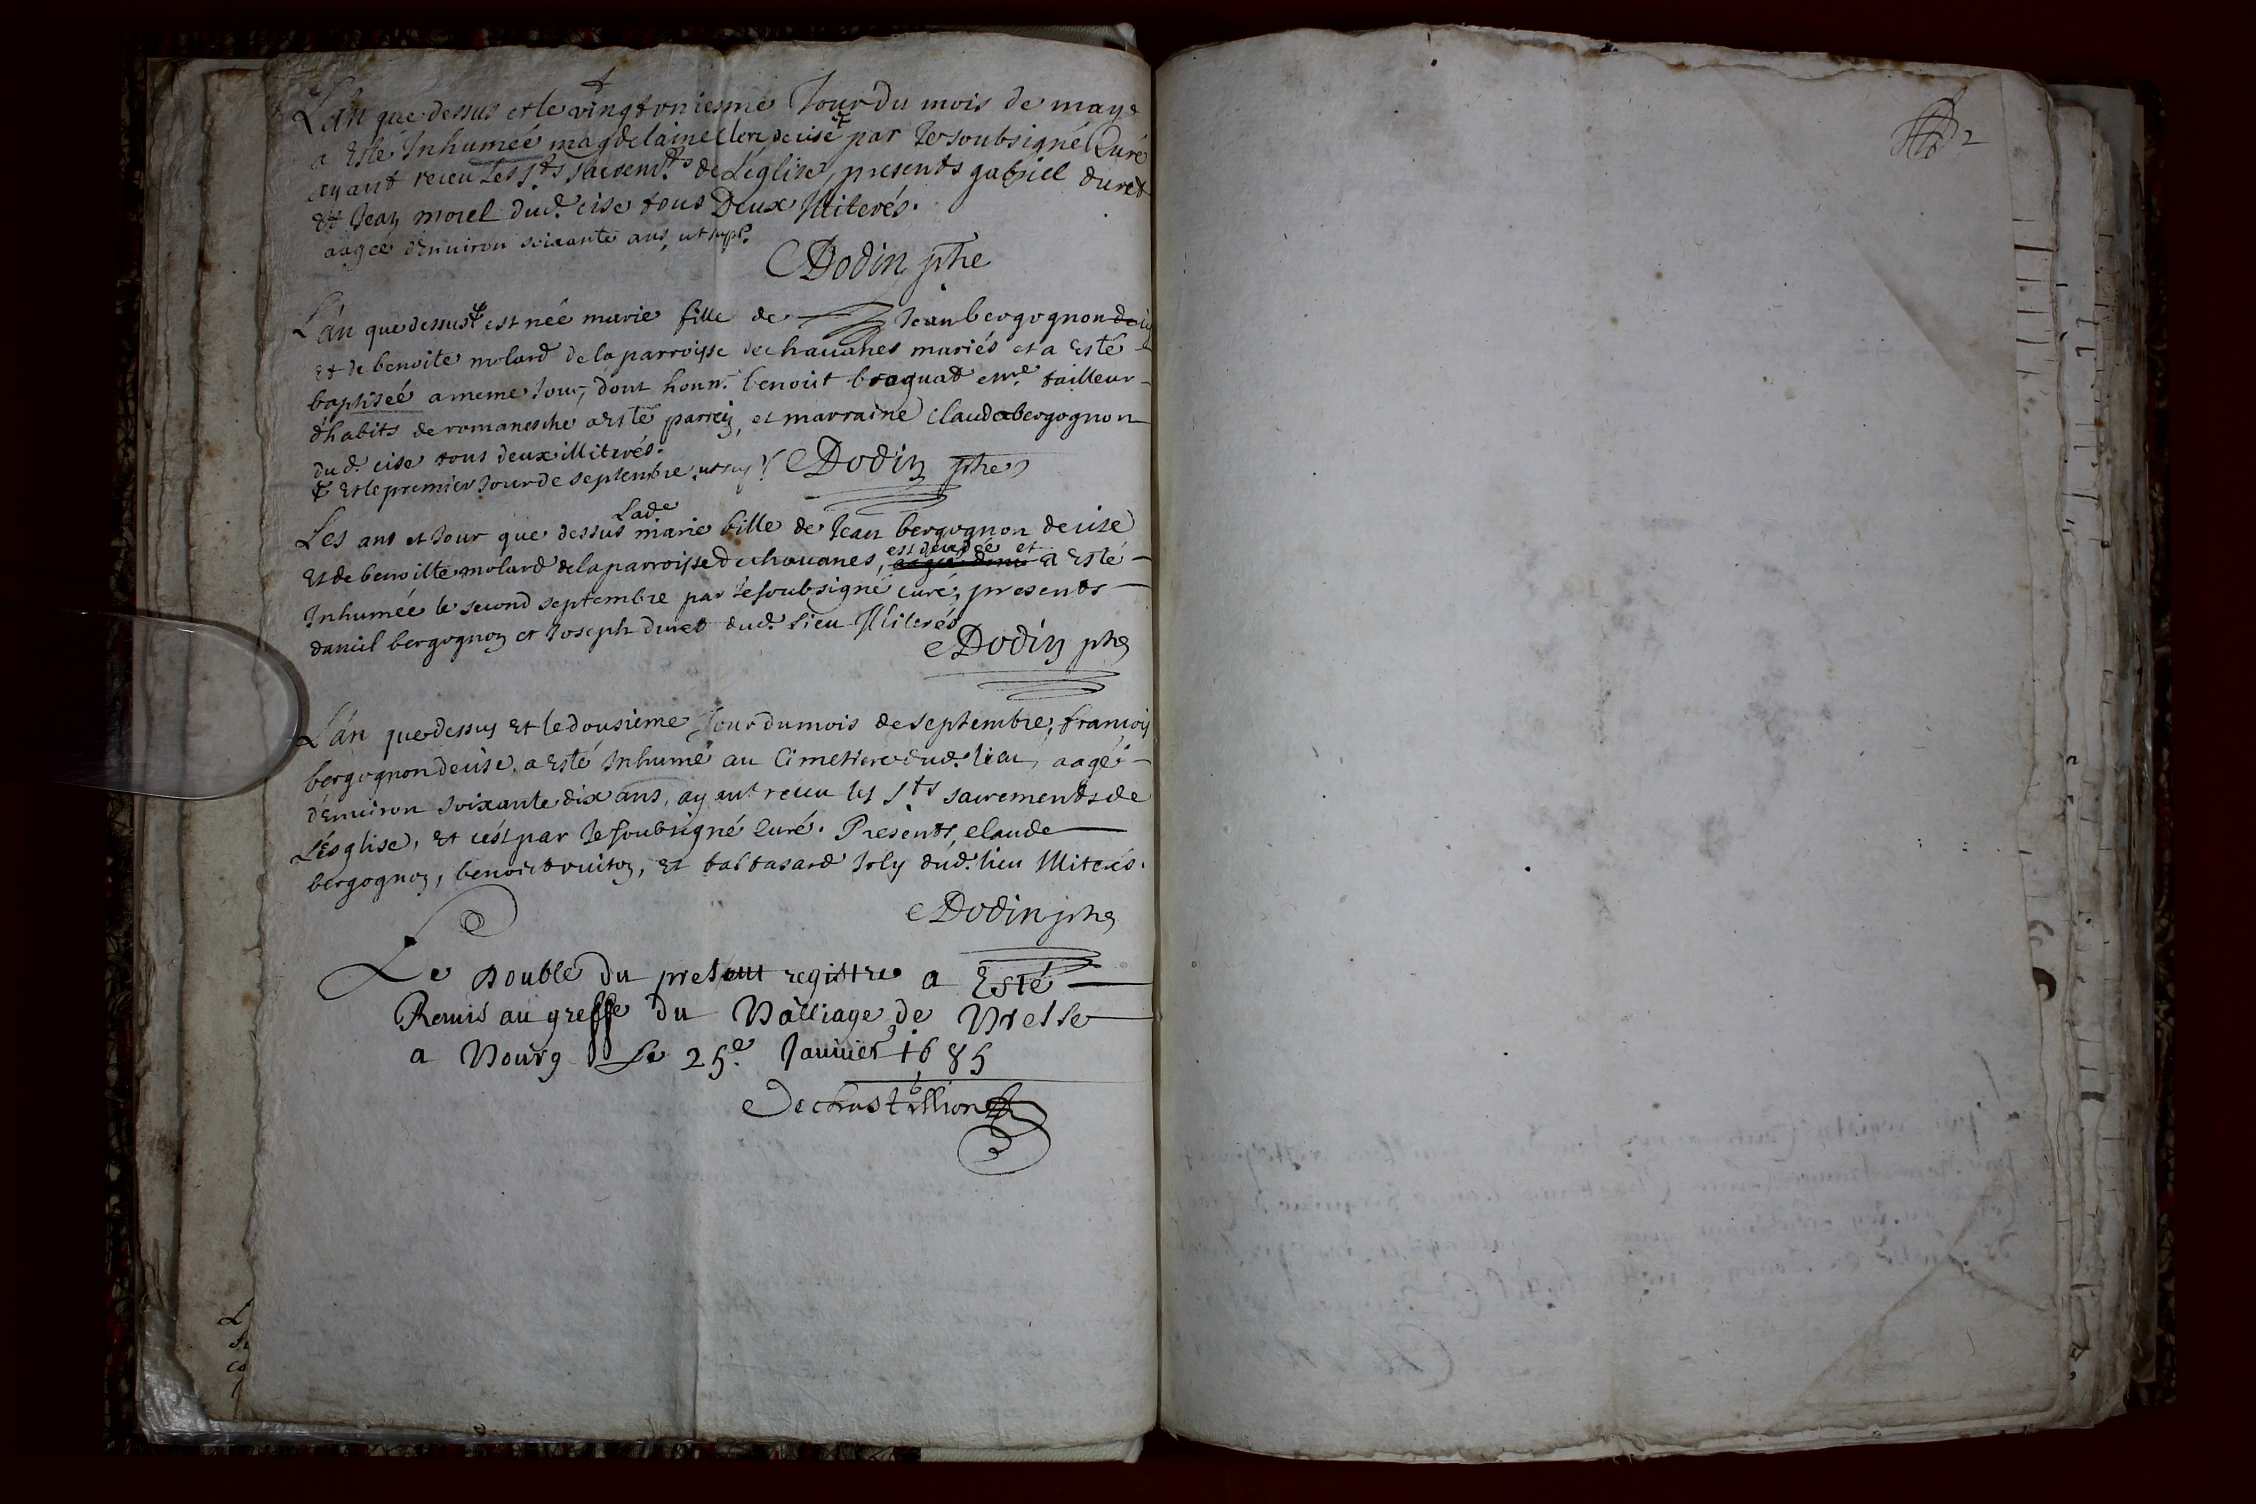 L'an que dessus et le vingt oniesme Jour du mois de may
a Esté Inhumée magdelaine clerc de cise par Je soubsigné Curé
ayant receu Les sts sacremts de L'églize, presents gabriel duret
Et Jean morel dud. cise tous Deux Illiterés.
aagée d'Enuiron soixante ans, ut supr.
Dodin ptre
L'an que dessus est née marie fille de Jean bergognon de
et de benoite molard de la parroisse de chauanes mariés et a Esté
baptiseé a meme Jour, dont honn. benoit braquat tailleur
d'habits de romanesche a Esté parrein, et marraine clauda bergognon
dud. cise tous deux illiterés.
Et le premier Jour de septembre, ut sup. Dodin ptre
Les ans et Jour que dessus Lade marie fille de Jean bergognon de cise
Et de benoitte molard de la parroisse de chauanes, est decedée et a Esté
Inhumée le second septembre par Je soubsigné curé, presents
daniel bergognon et Joseph duret dud. Lieu Illiterés
Dodin ptre
L'an que dessus Et le dousieme Jour du mois de septembre, francois
bergognon de cise, a Esté Inhumé au Cimetiere dud. lieu, aagé
d'Enuiron soixante dix ans, ayant receu les sts sacrements de
L'ésglise, Et c'est par Je soubsigné Curé. Presents, claude
bergognon, benoict vuiton, Et baltasard Joly dud. lieu Illiterés.
Dodin ptre
Le Double du present registre a Esté
Remis au greffe du Balliage de Bresse
a Bourg Le 25e Januier 1685
Dechastillion
2